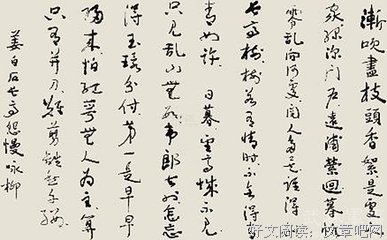 漸吹盡枝頭香絮是處人
家綠深門户遠浦縈回暮帆
零亂向何處閱人多矣誰得
长亭樹樹若有情时不会得青
青如许 日暮望高城不见
只见乱山無數韦郎去也怎忘
得玉環分付第一是早早
归来怕红萼無人为主算
只有并刀难剪離愁千縷
姜白石长亭怨慢咏柳
好文阅读：章吧网